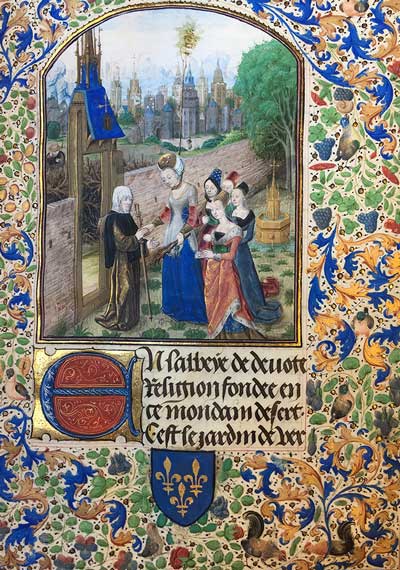 En labeye de devote
Religion fondee en
ce mondain desert
Cest le jardin de ver